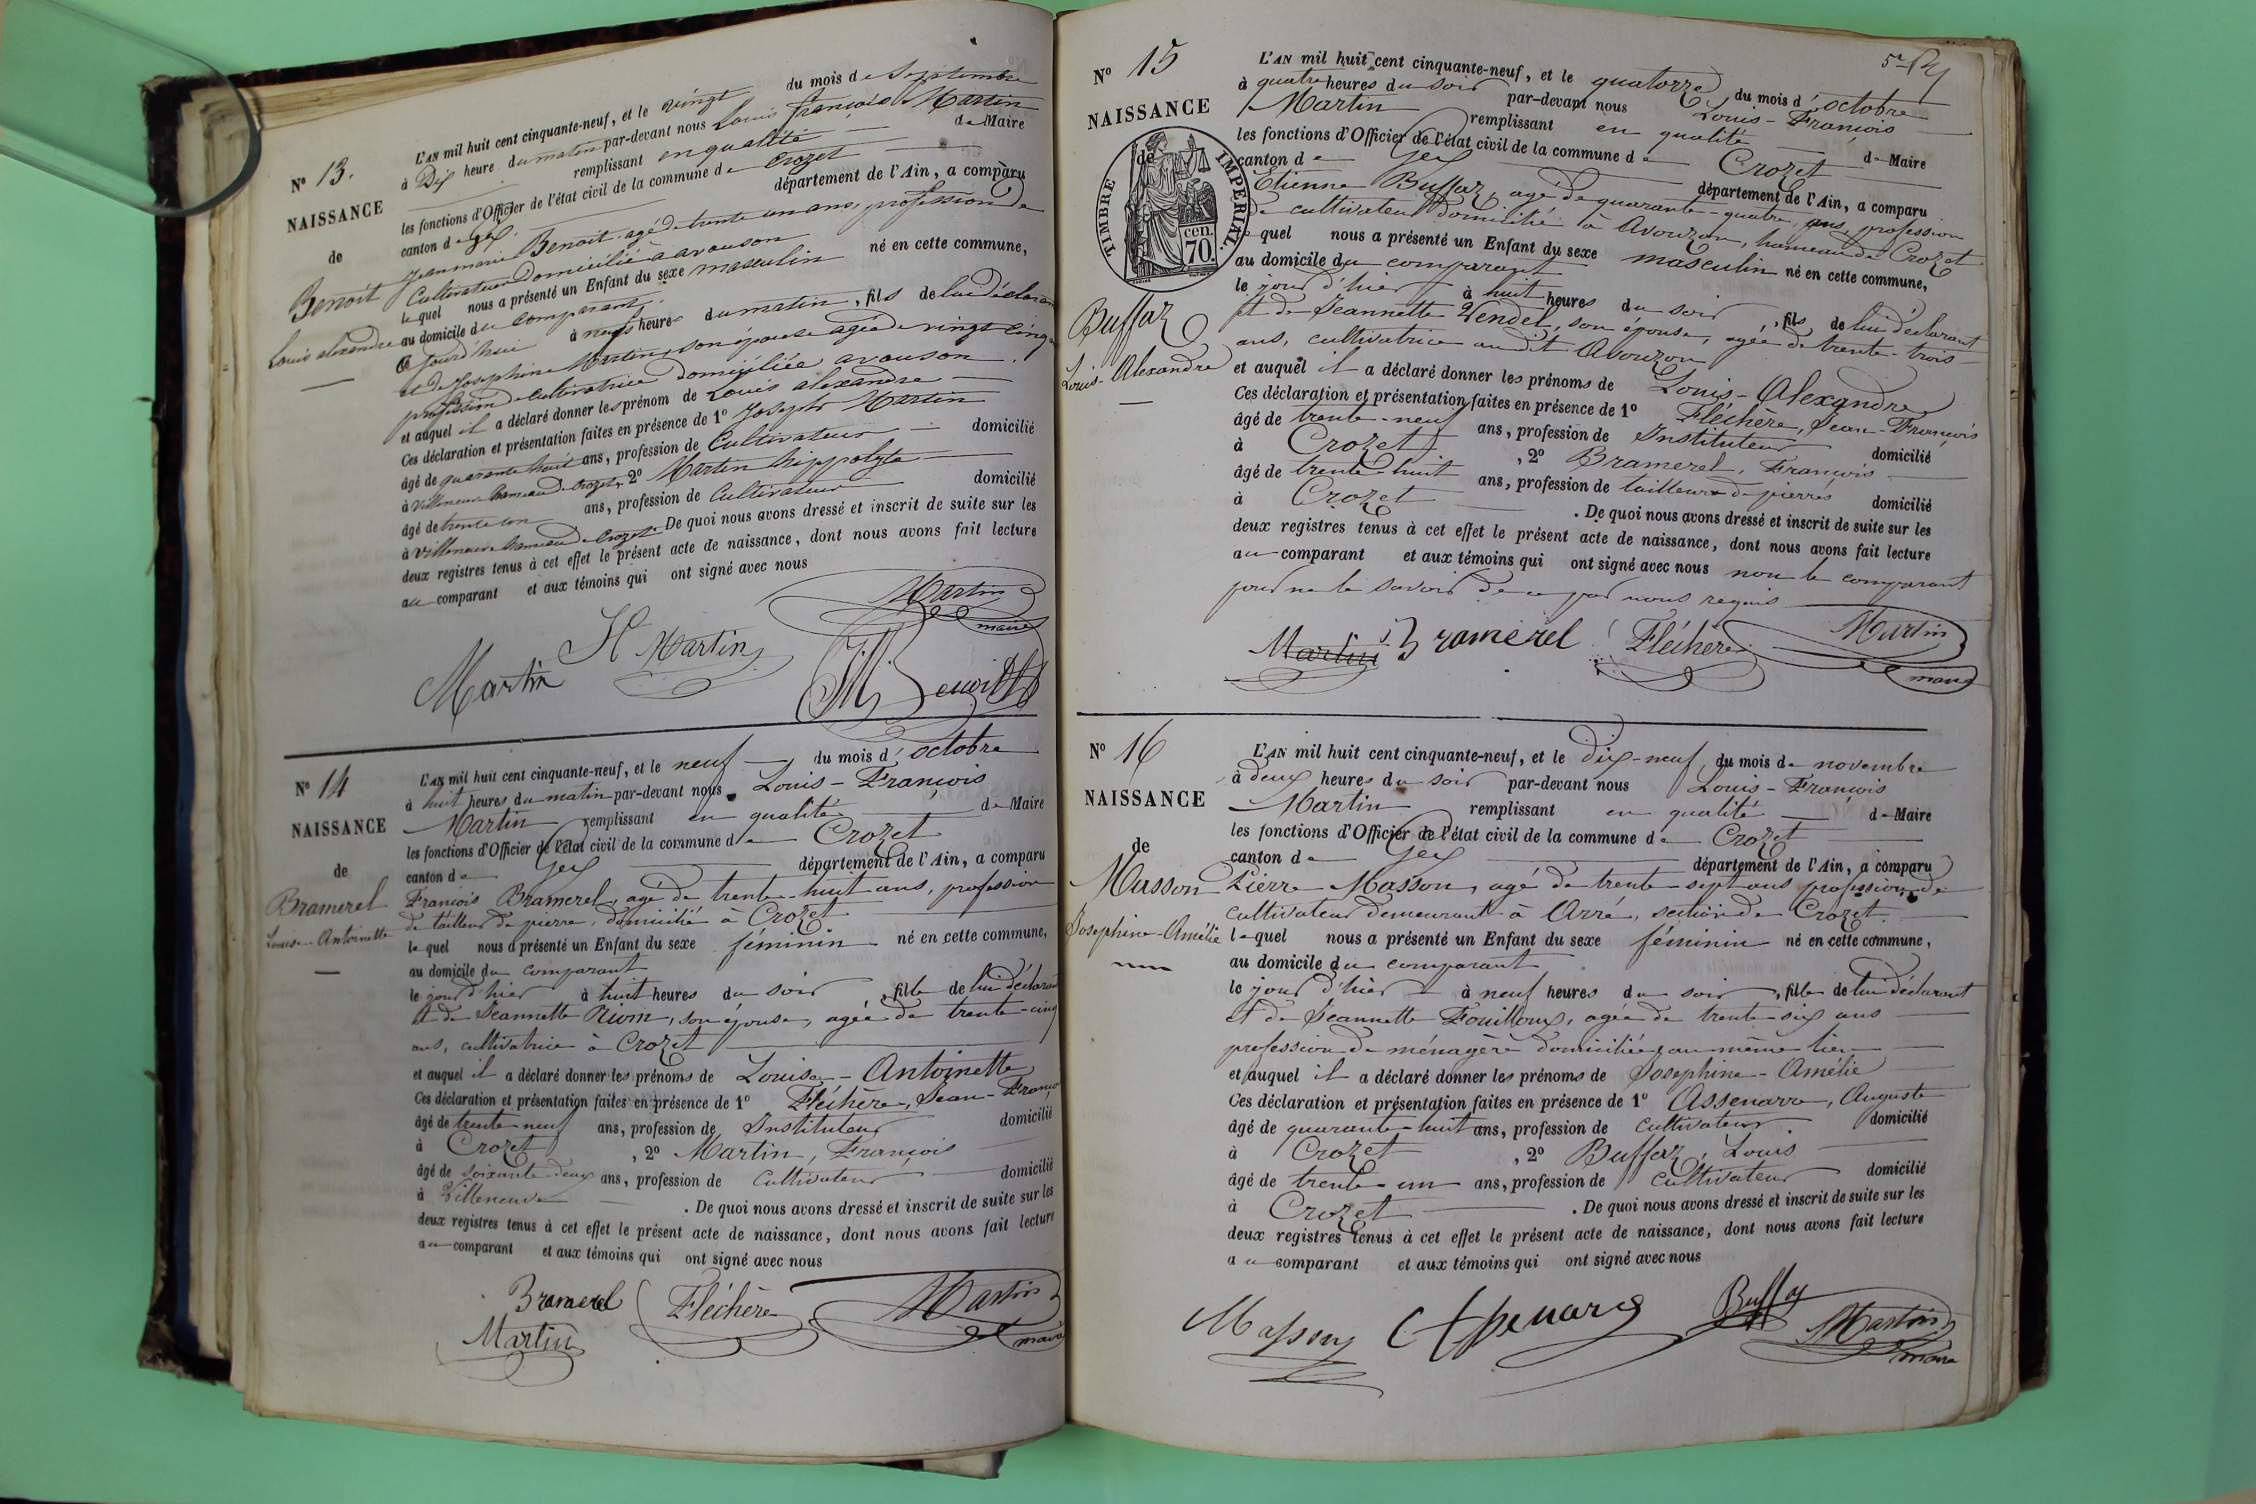 N° 13.
NAISSANCE
de
Benoit
Louis alexandre
L'AN mil huit cent cinquante-neuf, et le vingt du mois de Septembre
à Dix heure du matin par-devant nous Louis françois Martin
remplissant en qualité de Maire
les fonctions d'Officier de l'état civil de la commune de Crozet
canton de gex département de l'Ain, a comparu
Jean marie Benoit agé de trente un ans, profession de
Cultivateur domicilié à avouson
lequel nous a présenté un Enfant du sexe masculin né en cette commune,
au domicile du comparant
jourd'hui à neuf heures du matin, fils de lui déclarant
et de Josephine Martin, son épouse agée de vingt cinq
profession cultivatrice domiciliée a avouson.
et auquel il a déclaré donner les prénom de Louis alexandre
Ces déclaration et présentation faites en présence de 1° Joseph Martin
âgé de quarante huit ans, profession de Cultivateur domicilié
à Villeneuve hameau de Crozet, 2° Martin hippolyte
âgé de trente un ans, profession de Cultivateur domicilié
à Villeneuve hameau de Crozet De quoi nous avons dressé et inscrit de suite sur les
deux registres tenus à cet effet le présent acte de naissance, dont nous avons fait lecture
au comparant et aux témoins qui ont signé avec nous
Martin
maire
H Martin
Martin
JM Benoit
N° 14
NAISSANCE
de
Bramerel
Louise-Antoinette
L'AN mil huit cent cinquante-neuf, et le neuf du mois d'octobre
à huit heures du matin par-devant nous Louis-François
Martin remplissant en qualité de Maire
les fonctions d'Officier de l'état civil de la commune de Crozet
canton de Gex département de l'Ain, a comparu
François Bramerel, agé de trente-huit ans, profession
de tailleur de pierre, domicilié à Crozet
lequel nous a présenté un Enfant du sexe féminin né en cette commune,
au domicile du comparant
le jour d'hier à huit heures du soir, fille de lui déclarant
et de Jeannette Riom, son épouse, agée de trente-cinq
ans, cultivatrice à Crozet
et auquel il a déclaré donner les prénoms de Louise-Antoinette
Ces déclaration et présentation faites en présence de 1° Fléchère, Jean-Franço
âgé de trente neuf ans, profession de Instituteur domicilié
à Crozet, 2° Martin, François
âgé de soixante-deux ans, profession de Cultivateur domicilié
à Villeneuve . De quoi nous avons dressé et inscrit de suite sur les
deux registres tenus à cet effet le présent acte de naissance, dont nous avons fait lecture
au comparant et aux témoins qui ont signé avec nous
Bramerel Fléchère Martin
Martin maire
N° 15
NAISSANCE
de
TIMBRE IMPÉRIAL
70 cen.
Buffaz
Louis-Alexandre
L'AN mil huit cent cinquante-neuf, et le quatorze du mois d'octobre
à quatre heures du soir par-devant nous Louis-François
Martin remplissant en qualité de Maire
les fonctions d'Officier de l'état civil de la commune de Crozet
canton de Gex département de l'Ain, a comparu
Etienne Buffaz, agé de quarante-quatre ans, profession
de cultivateur domicilié à Avouzon, hameau de Crozet
lequel nous a présenté un Enfant du sexe masculin né en cette commune,
au domicile du comparant
le jour d'hier à huit heures du soir, fils de lui déclarant
et de Jeannette Vendel, son épouse, agée de trente-trois
ans, cultivatrice audit Avouzon
et auquel il a déclaré donner les prénoms de Louis-Alexandre
Ces déclaration et présentation faites en présence de 1° Fléchère, Jean-François
âgé de trente-neuf ans, profession de Instituteur domicilié
à Crozet, 2° Bramerel, François
âgé de trente-huit ans, profession de tailleur de pierres domicilié
à Crozet . De quoi nous avons dressé et inscrit de suite sur les
deux registres tenus à cet effet le présent acte de naissance, dont nous avons fait lecture
au comparant et aux témoins qui ont signé avec nous non le comparant
pour ne le savoir de ce par nous requis
Martin Bramerel Fléchère Martin
maire
N° 16
NAISSANCE
de
Masson
Josephine-Amélie
L'AN mil huit cent cinquante-neuf, et le dix-neuf, du mois de novembre
à deux heures du soir par-devant nous Louis-François
Martin remplissant en qualité de Maire
les fonctions d'Officier de l'état civil de la commune de Crozet
canton de Gex département de l'Ain, a comparu
Pierre Masson, agé de trente-sept ans profession de
cultivateur demeurant à Arré, section de Crozet
lequel nous a présenté un Enfant du sexe féminin né en cette commune,
au domicile du comparant
le jour d'hier à neuf heures du soir, fille de lui déclarant
et de Jeannette Fouilloux, agée de trente-six ans
profession de ménagère domiciliée au même lieu
et auquel il a déclaré donner les prénoms de Josephine-Amélie
Ces déclaration et présentation faites en présence de 1° Assenarre, Auguste
âgé de quarante-huit ans, profession de cultivateur domicilié
à Crozet, 2° Buffaz, Louis
âgé de trente-un ans, profession de cultivateur domicilié
à Crozet . De quoi nous avons dressé et inscrit de suite sur les
deux registres tenus à cet effet le présent acte de naissance, dont nous avons fait lecture
au comparant et aux témoins qui ont signé avec nous
Masson Buffaz Martin
maire